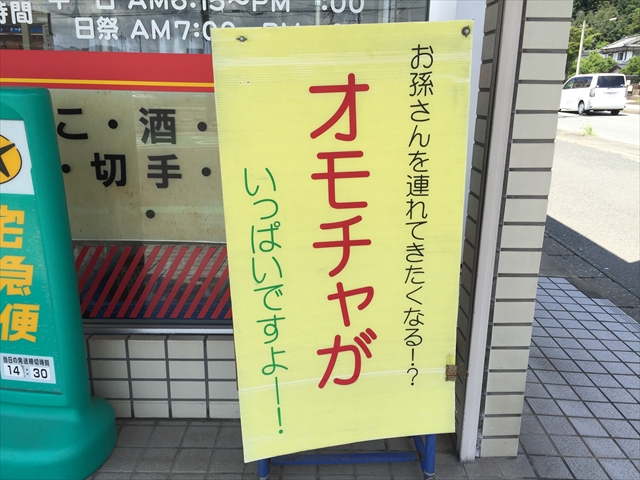 日祭 AM7:00
こ・酒・
・切手・
宅急便
当日の発送締切時刻
14:30
お孫さんを連れてきたくなる!?
オモチャが
いっぱいですよー!